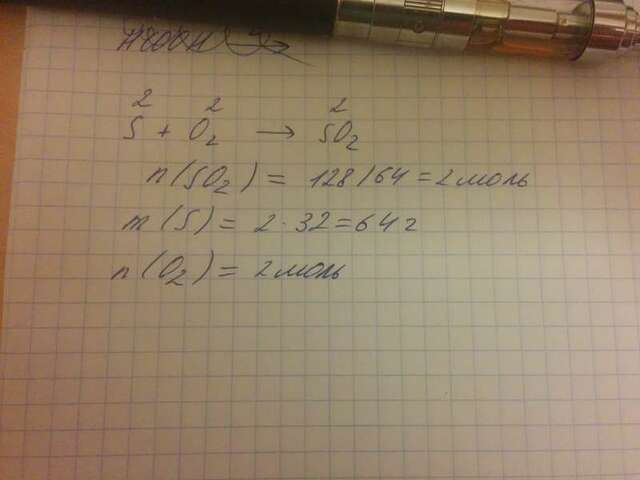 2 2 2
S + O2 → SO2
n(SO2) = 128/64 = 2 моль
m(S) = 2·32 = 64 г
n(O2) = 2 моль